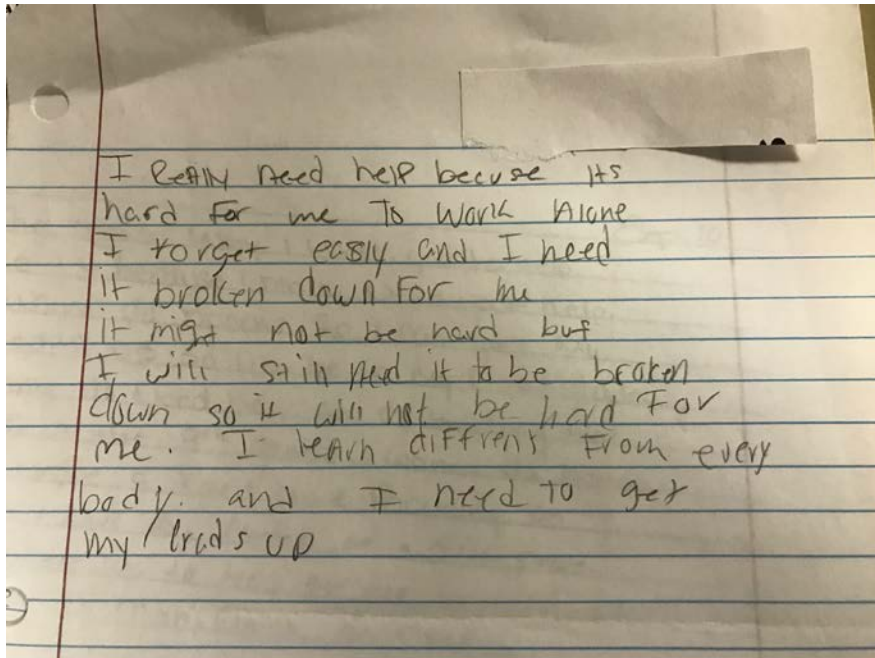 I ReAlly need help becuse its
hard for me To Work Alone
I forget easly and I need
it broken down For me
it migt not be hard but
I will still need it to be broken
down so it will not be hard For
me. I leArn diffrent From every
body. and I need to get
my grads up